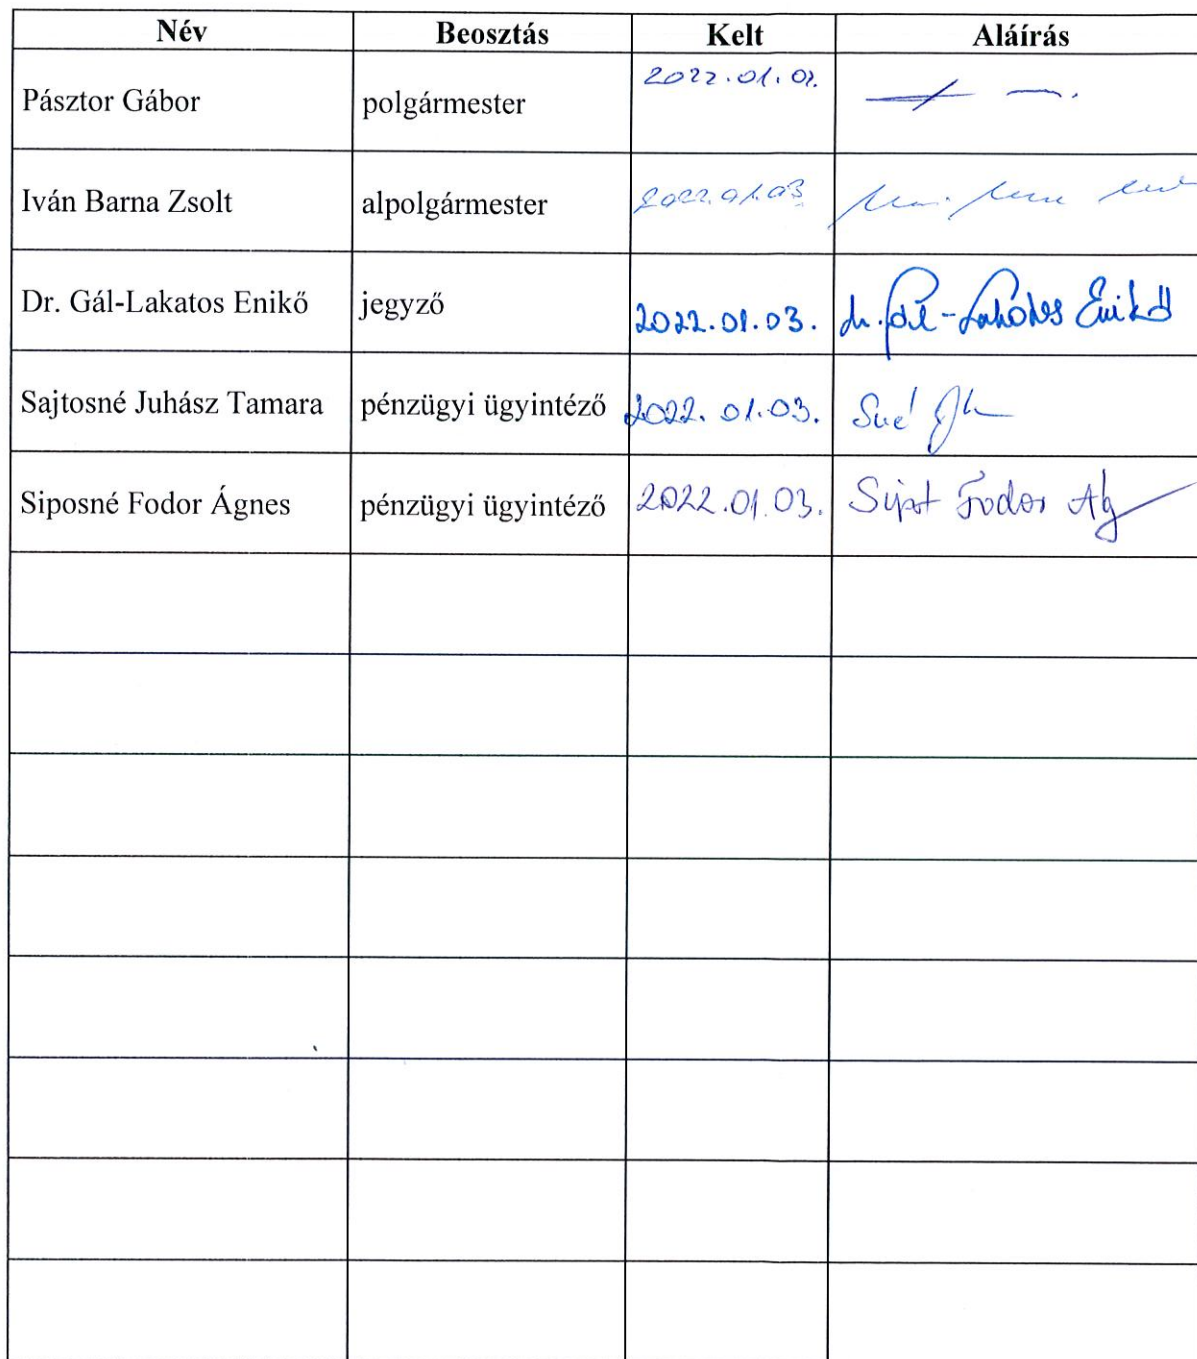 Név Beosztás Kelt Aláírás
Pásztor Gábor polgármester 2022.01.03.
Iván Barna Zsolt alpolgármester 2022.01.03
Dr. Gál-Lakatos Enikő jegyző 2022.01.03. dr. Gál-Lakatos Enikő
Sajtosné Juhász Tamara pénzügyi ügyintéző 2022. 01.03.
Siposné Fodor Ágnes pénzügyi ügyintéző 2022.01.03. Fodor